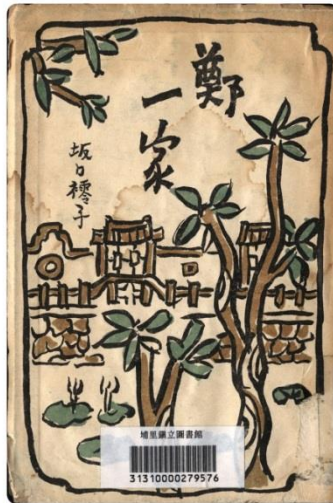 鄭一家
坂口䙥子
埔里鎮立圖書館
31310000279576